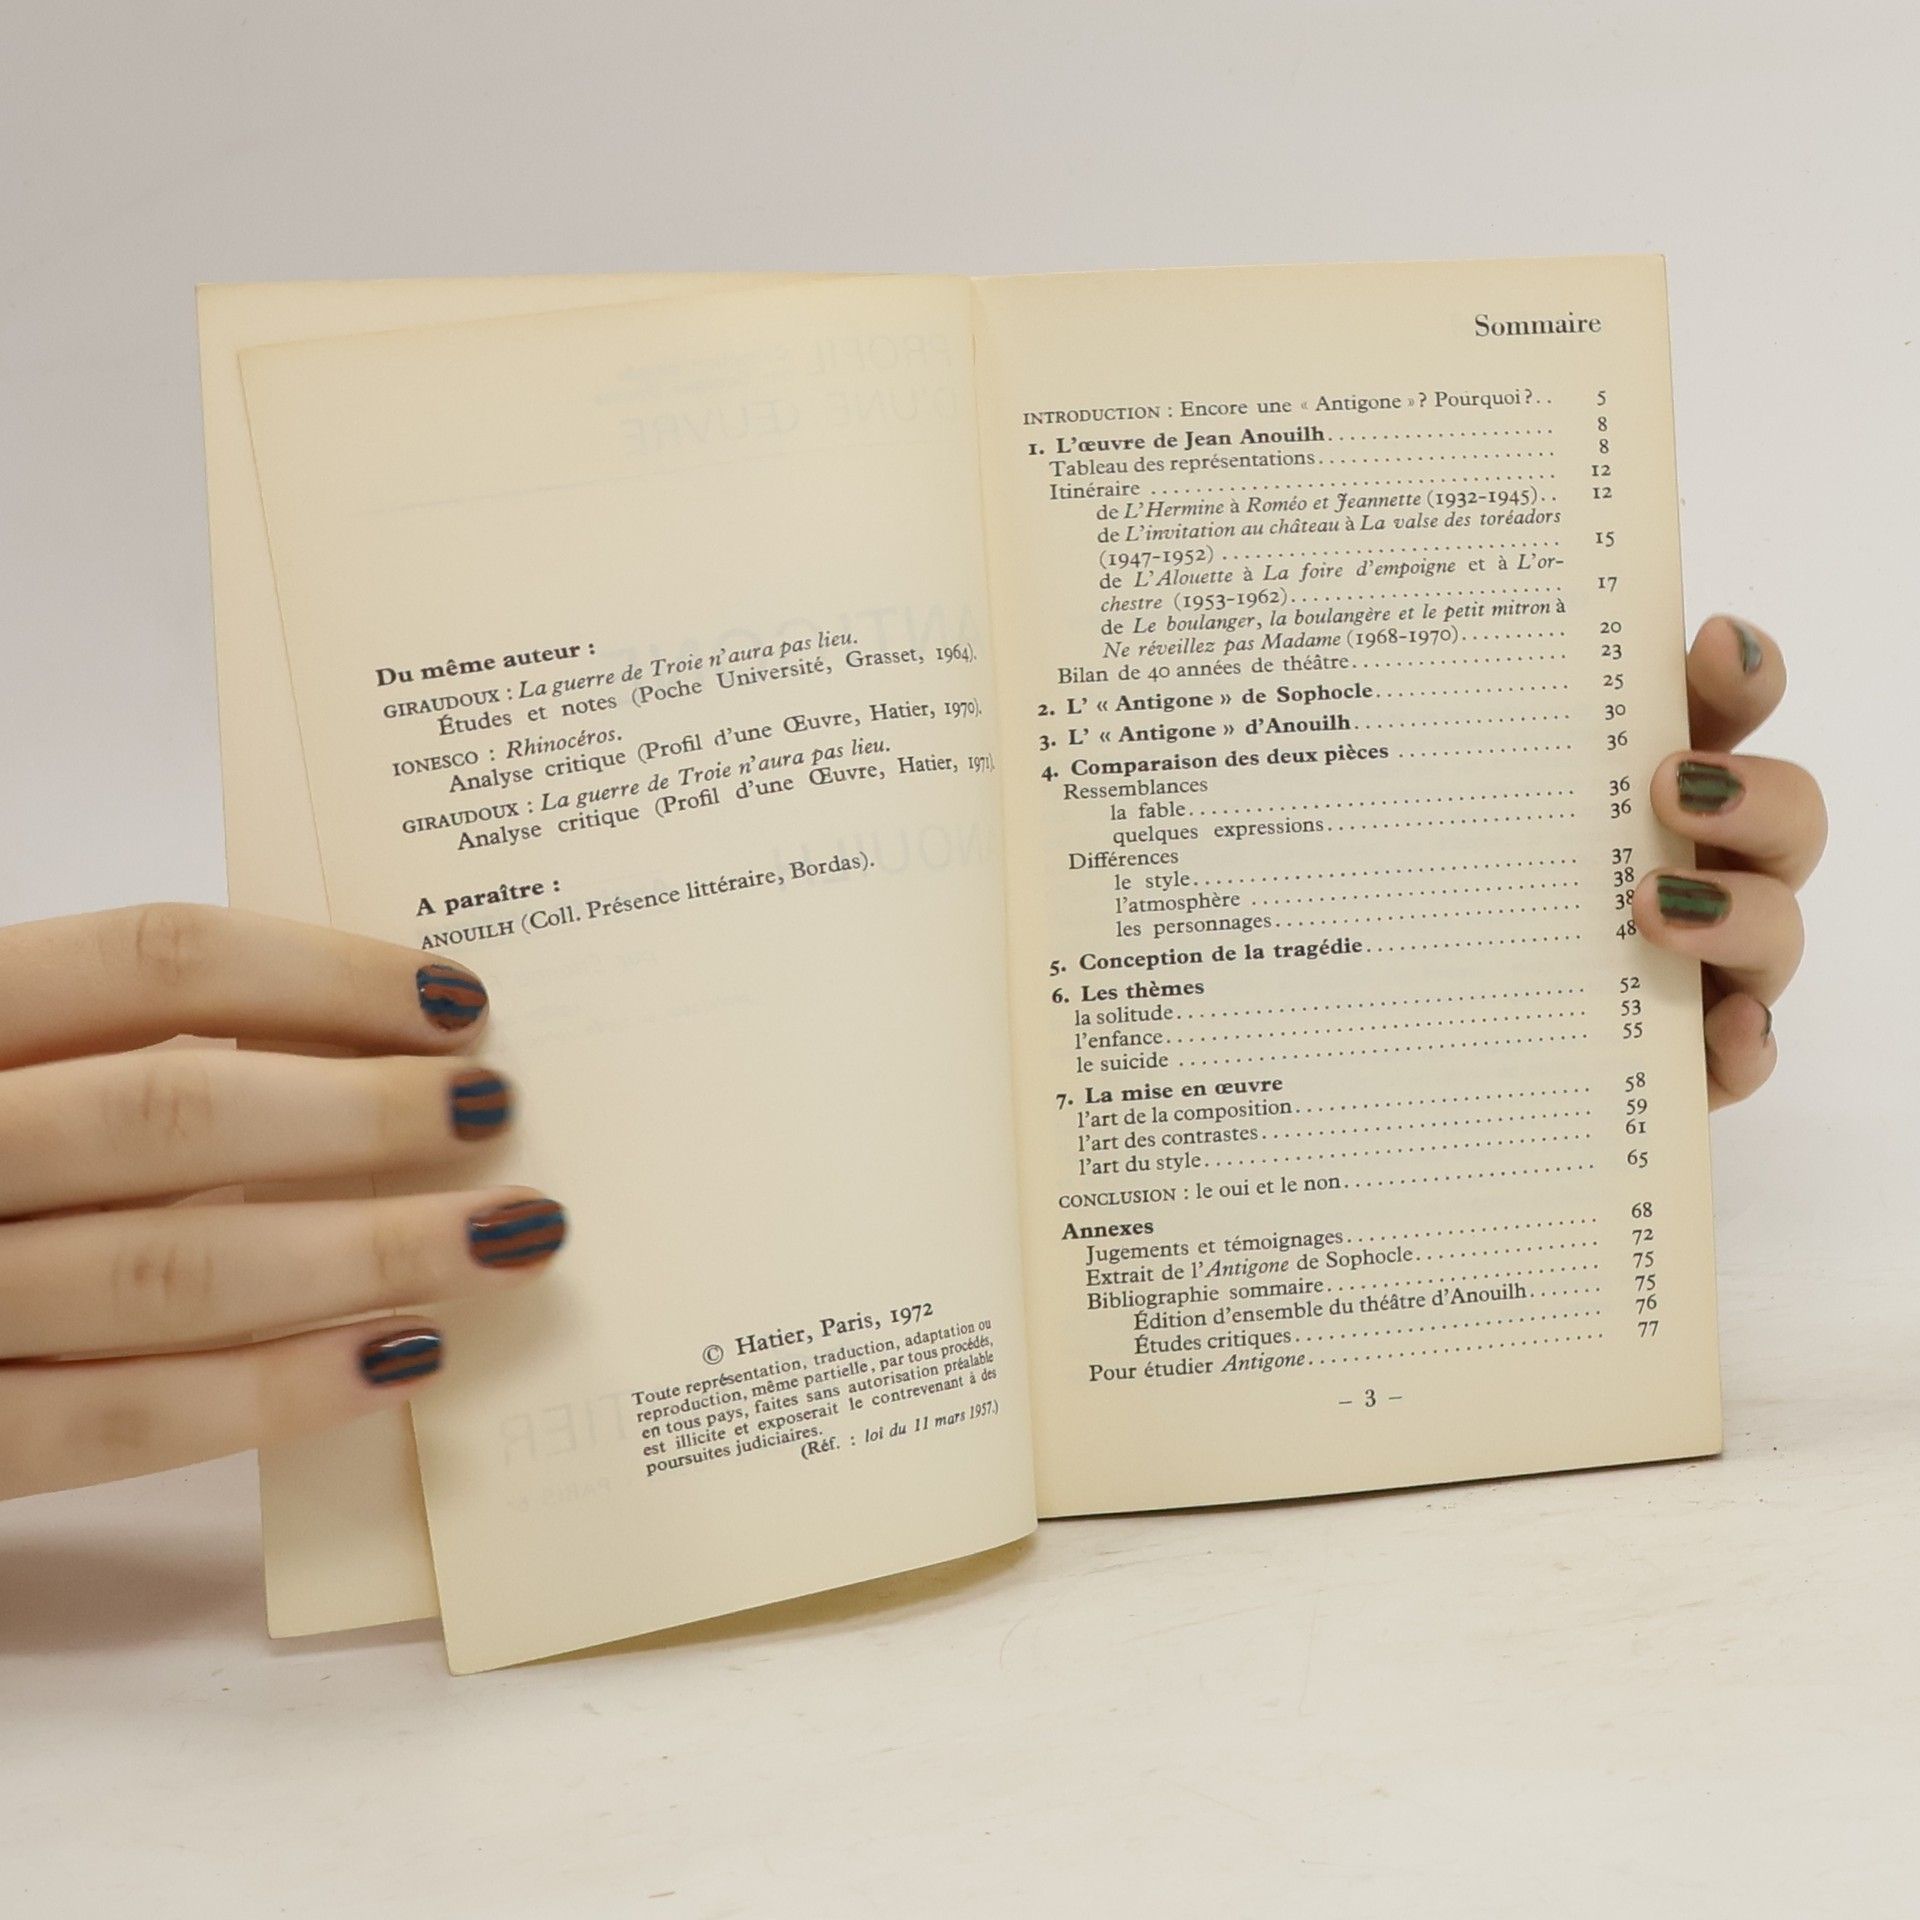 Du même auteur :
GIRAUDOUX : La guerre de Troie n'aura pas lieu.
Études et notes (Poche Université, Grasset, 1964).
IONESCO : Rhinocéros.
Analyse critique (Profil d'une Œuvre, Hatier, 1970).
GIRAUDOUX : La guerre de Troie n'aura pas lieu.
Analyse critique (Profil d'une Œuvre, Hatier, 1971).
A paraître :
ANOUILH (Coll. Présence littéraire, Bordas).
© Hatier, Paris, 1972
Toute représentation, traduction, adaptation ou
reproduction, même partielle, par tous procédés,
en tous pays, faites sans autorisation préalable
est illicite et exposerait le contrevenant à des
poursuites judiciaires.
(Réf. : loi du 11 mars 1957.)
Sommaire
INTRODUCTION : Encore une « Antigone »? Pourquoi?.. 5
1. L'œuvre de Jean Anouilh..................... 8
Tableau des représentations..................... 8
Itinéraire .................................... 12
de L'Hermine à Roméo et Jeannette (1932-1945).. 12
de L'invitation au château à La valse des toréadors
(1947-1952) ............................... 15
de L'Alouette à La foire d'empoigne et à L'or-
chestre (1953-1962)........................ 17
de Le boulanger, la boulangère et le petit mitron à
Ne réveillez pas Madame (1968-1970).......... 20
Bilan de 40 années de théâtre................... 23
2. L' « Antigone » de Sophocle................. 25
3. L' « Antigone » d'Anouilh................... 30
4. Comparaison des deux pièces ............... 36
Ressemblances
la fable.................................. 36
quelques expressions...................... 36
Différences
le style.................................. 37
l'atmosphère ............................. 38
les personnages........................... 38
5. Conception de la tragédie.................. 48
6. Les thèmes
la solitude.................................... 52
l'enfance..................................... 53
le suicide .................................... 55
7. La mise en œuvre
l'art de la composition......................... 58
l'art des contrastes............................ 59
l'art du style................................. 61
CONCLUSION : le oui et le non..................... 65
Annexes
Jugements et témoignages...................... 68
Extrait de l'Antigone de Sophocle................ 72
Bibliographie sommaire........................ 75
Édition d'ensemble du théâtre d'Anouilh....... 75
Études critiques........................... 76
Pour étudier Antigone.......................... 77
– 3 –